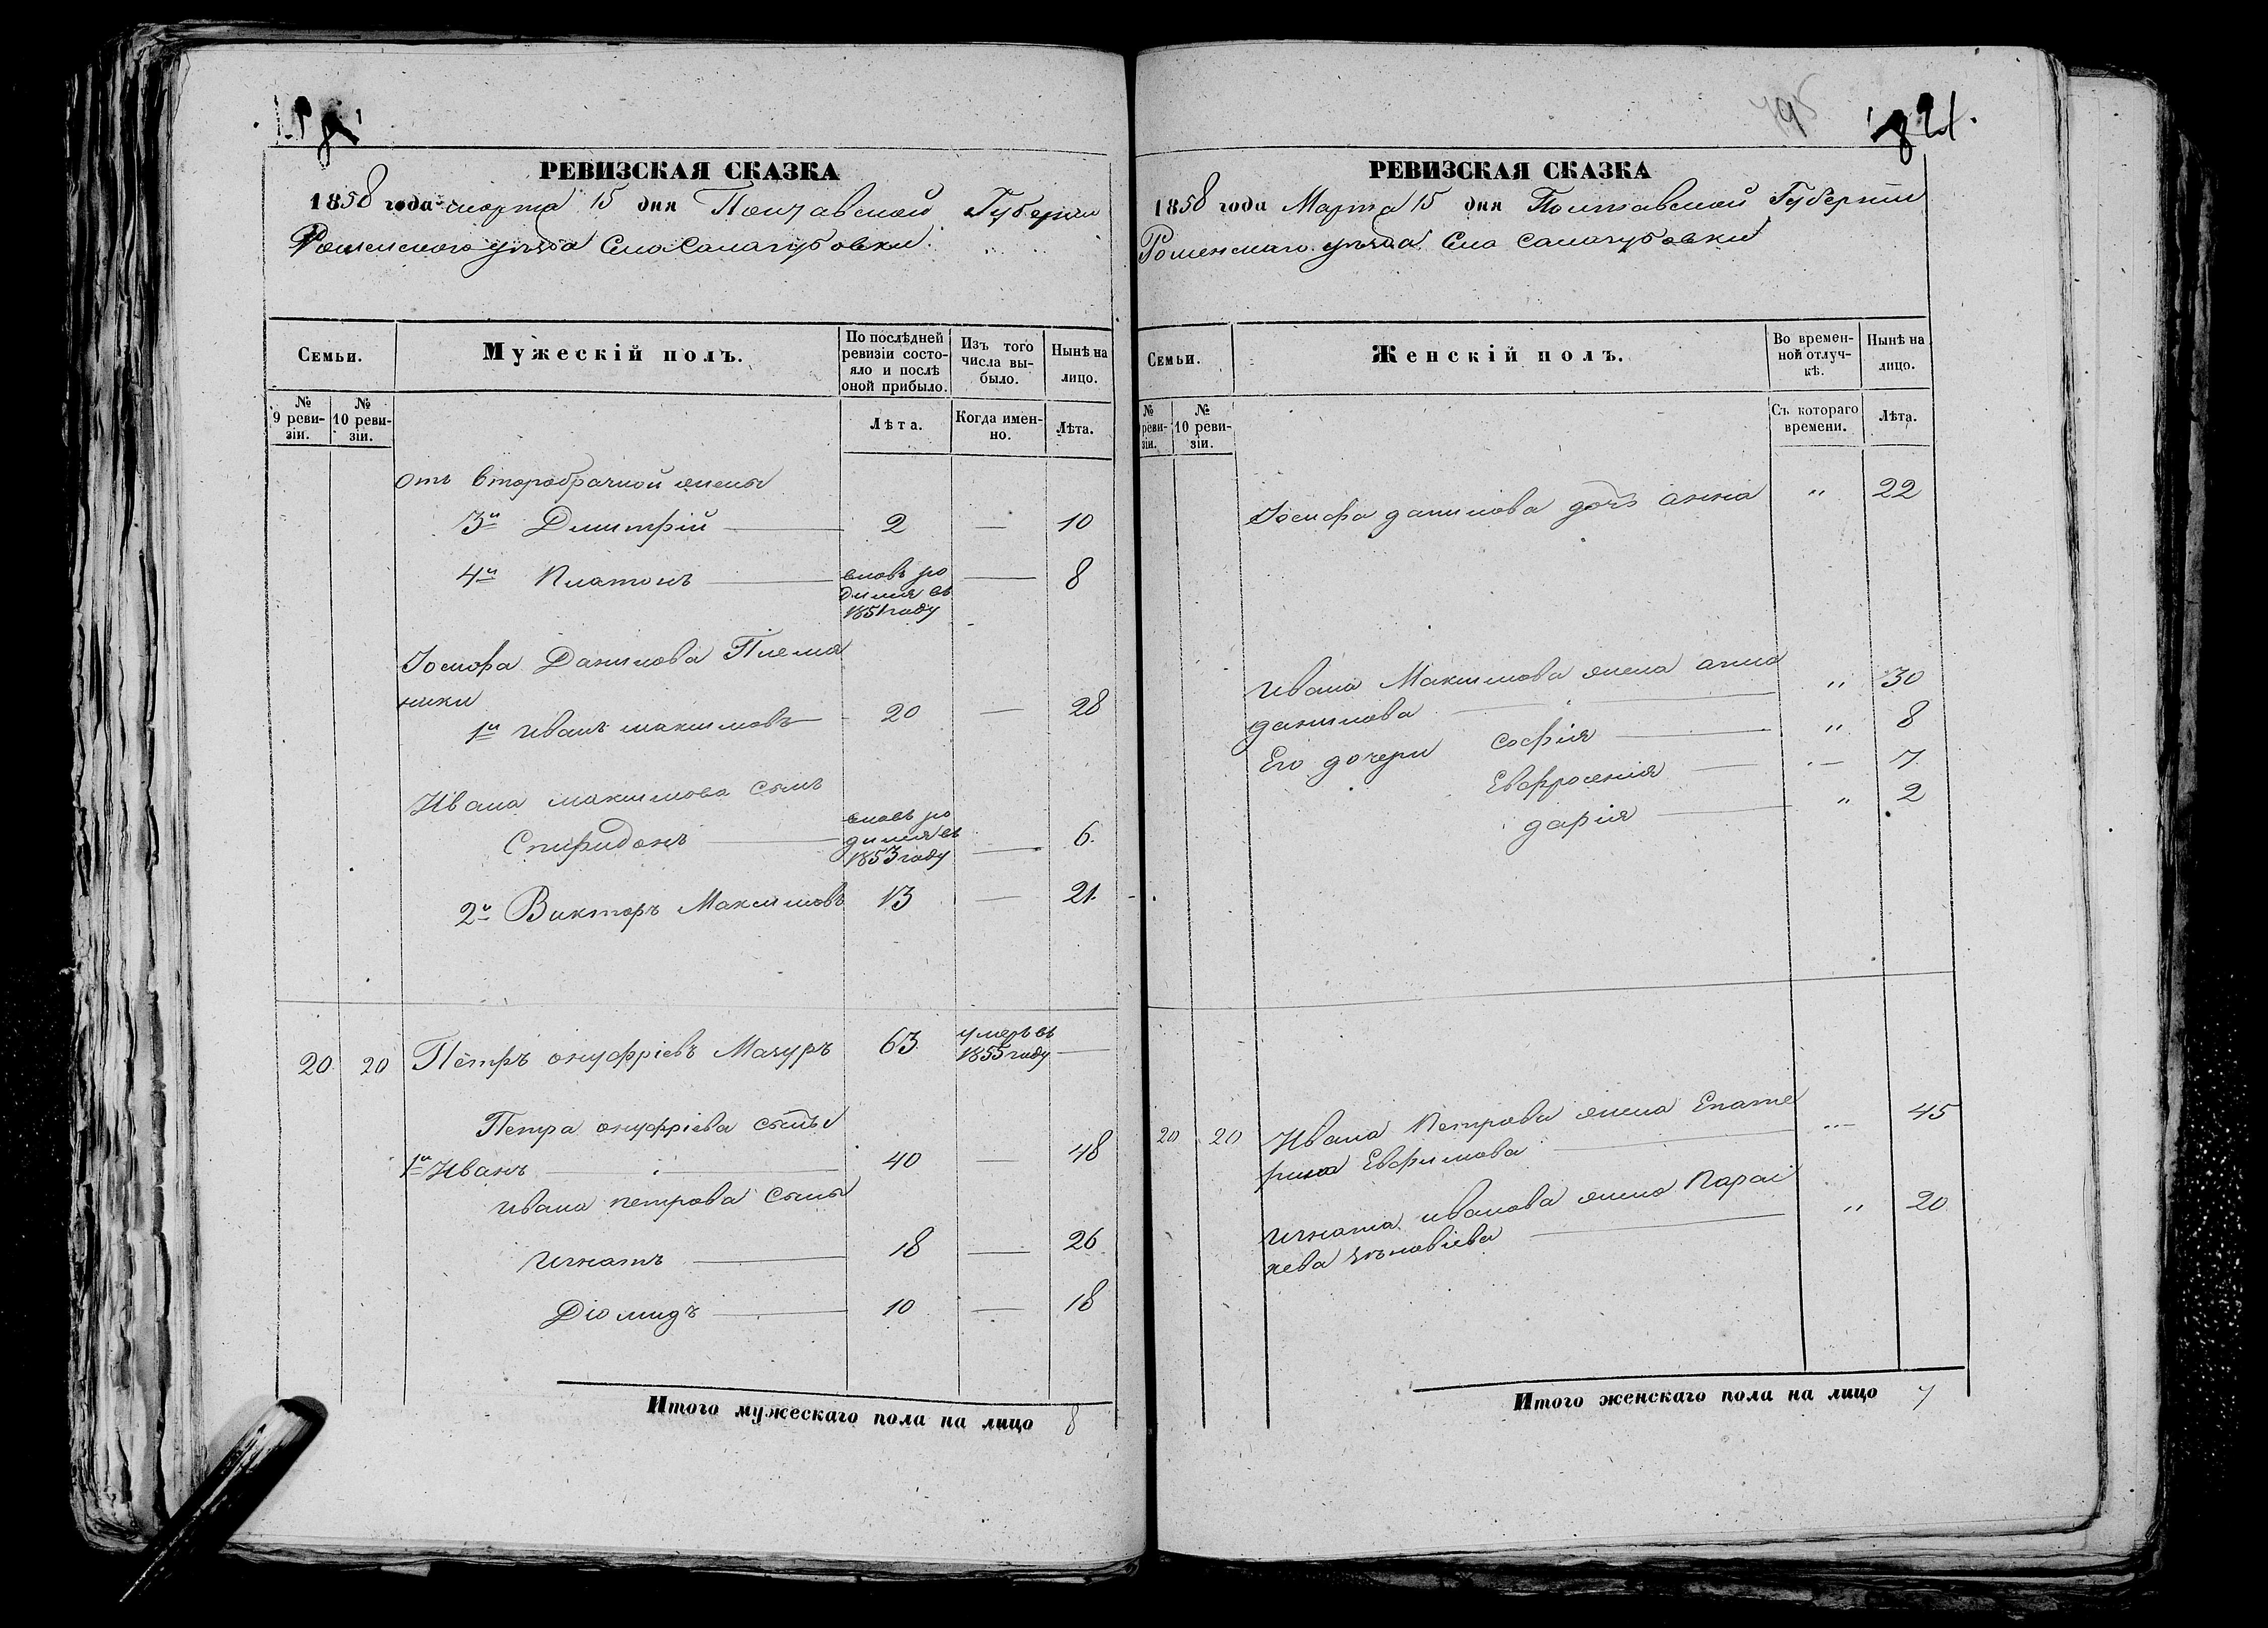 795
821.
РЕВИЗСКАЯ СКАЗКА
1858 года марта 15 дня Полтавской Губерніи
Роменского уѣзда Села Салогубовки
Семьи.
Мужескій полъ.
По послѣдней ревизіи состояло и послѣ оной прибыло.
Изъ того числа выбыло.
Нынѣ на лицо.
№ 9 ревизіи.
№ 10 ревизіи.
Лѣта.
Когда именно.
Лѣта.
отъ второбрачной жены
3й Дмитрій 2 — 10
4й Платонъ вновь ро — 8
дился въ
1851 году
Іосифа Данилова Племя
ники
1й иванъ максимовъ 20 — 28
Ивана максимова сынъ
вновь ро
Спиридонъ дился въ — 6.
1853 году
2й Викторъ Максимовъ 13 — 21.
20 20 Пётръ онуфріевъ Мачуръ 63 умеръ въ —
1855 году
Петра онуфріева сыны
1й Иванъ 40 — 48
ивана петрова сыны
игнатъ 18 — 26
Діомидъ 10 — 18
Итого мужескаго пола на лицо 8
РЕВИЗСКАЯ СКАЗКА
1858 года Марта 15 дня Полтавской Губерніи
Роменскаго уѣзда Села Салогубовки
Семьи.
Женскій полъ.
Во временной отлучкѣ.
Нынѣ на лицо.
№ реви-зіи.
№ 10 ревизіи.
Съ котораго времени.
Лѣта.
Іосифа данилова дочь анна " 22
ивана Максимова жена анна
данилова " 30
Его дочери софія " 8
Евфросенія " 7
дарія " 2
20 20 Ивана Петрова жена Екате
рина Ефимова " 45
игната иванова жена Парас
кева Зѣновіева " 20
Итого женскаго пола на лицо 7